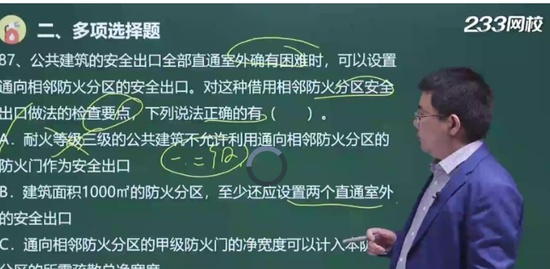 二、多项选择题
233网校
87、公共建筑的安全出口全部直通室外确有困难时，可以设置
通向相邻防火分区的安全出口。对这种借用相邻防火分区安全
出口做法的检查要点，下列说法正确的有（　　）。
A．耐火等级三级的公共建筑不允许利用通向相邻防火分区的
防火门作为安全出口
一.二级
B．建筑面积1000㎡的防火分区，至少还应设置两个直通室外
的安全出口
C．通向相邻防火分区的甲级防火门的净宽度可以计入本防
分区的所需疏散总净宽度